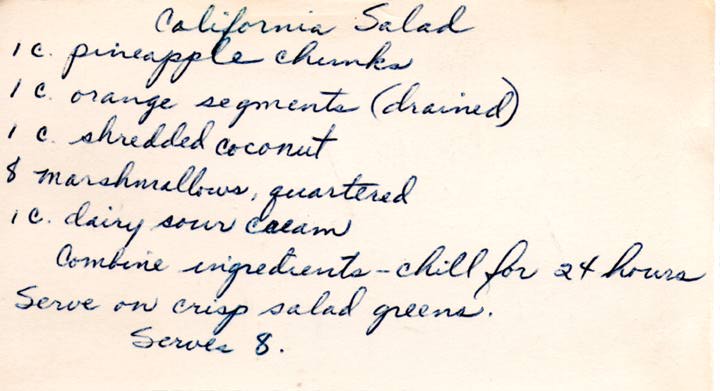 California Salad
1 c. pineapple chunks
1 c. orange segments (drained)
1 c. shredded coconut
8 marshmallows, quartered
1 c. dairy sour cream
Combine ingredients - chill for 24 hours
Serve on crisp salad greens.
Serves 8.